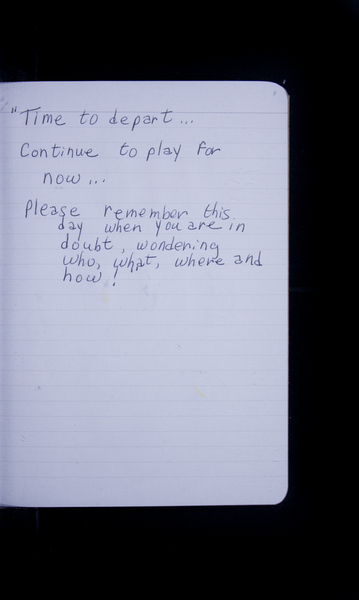 "Time to depart...
Continue to play for
now...
Please remember this
day when you are in
doubt, wondering
who, what, where and
how!